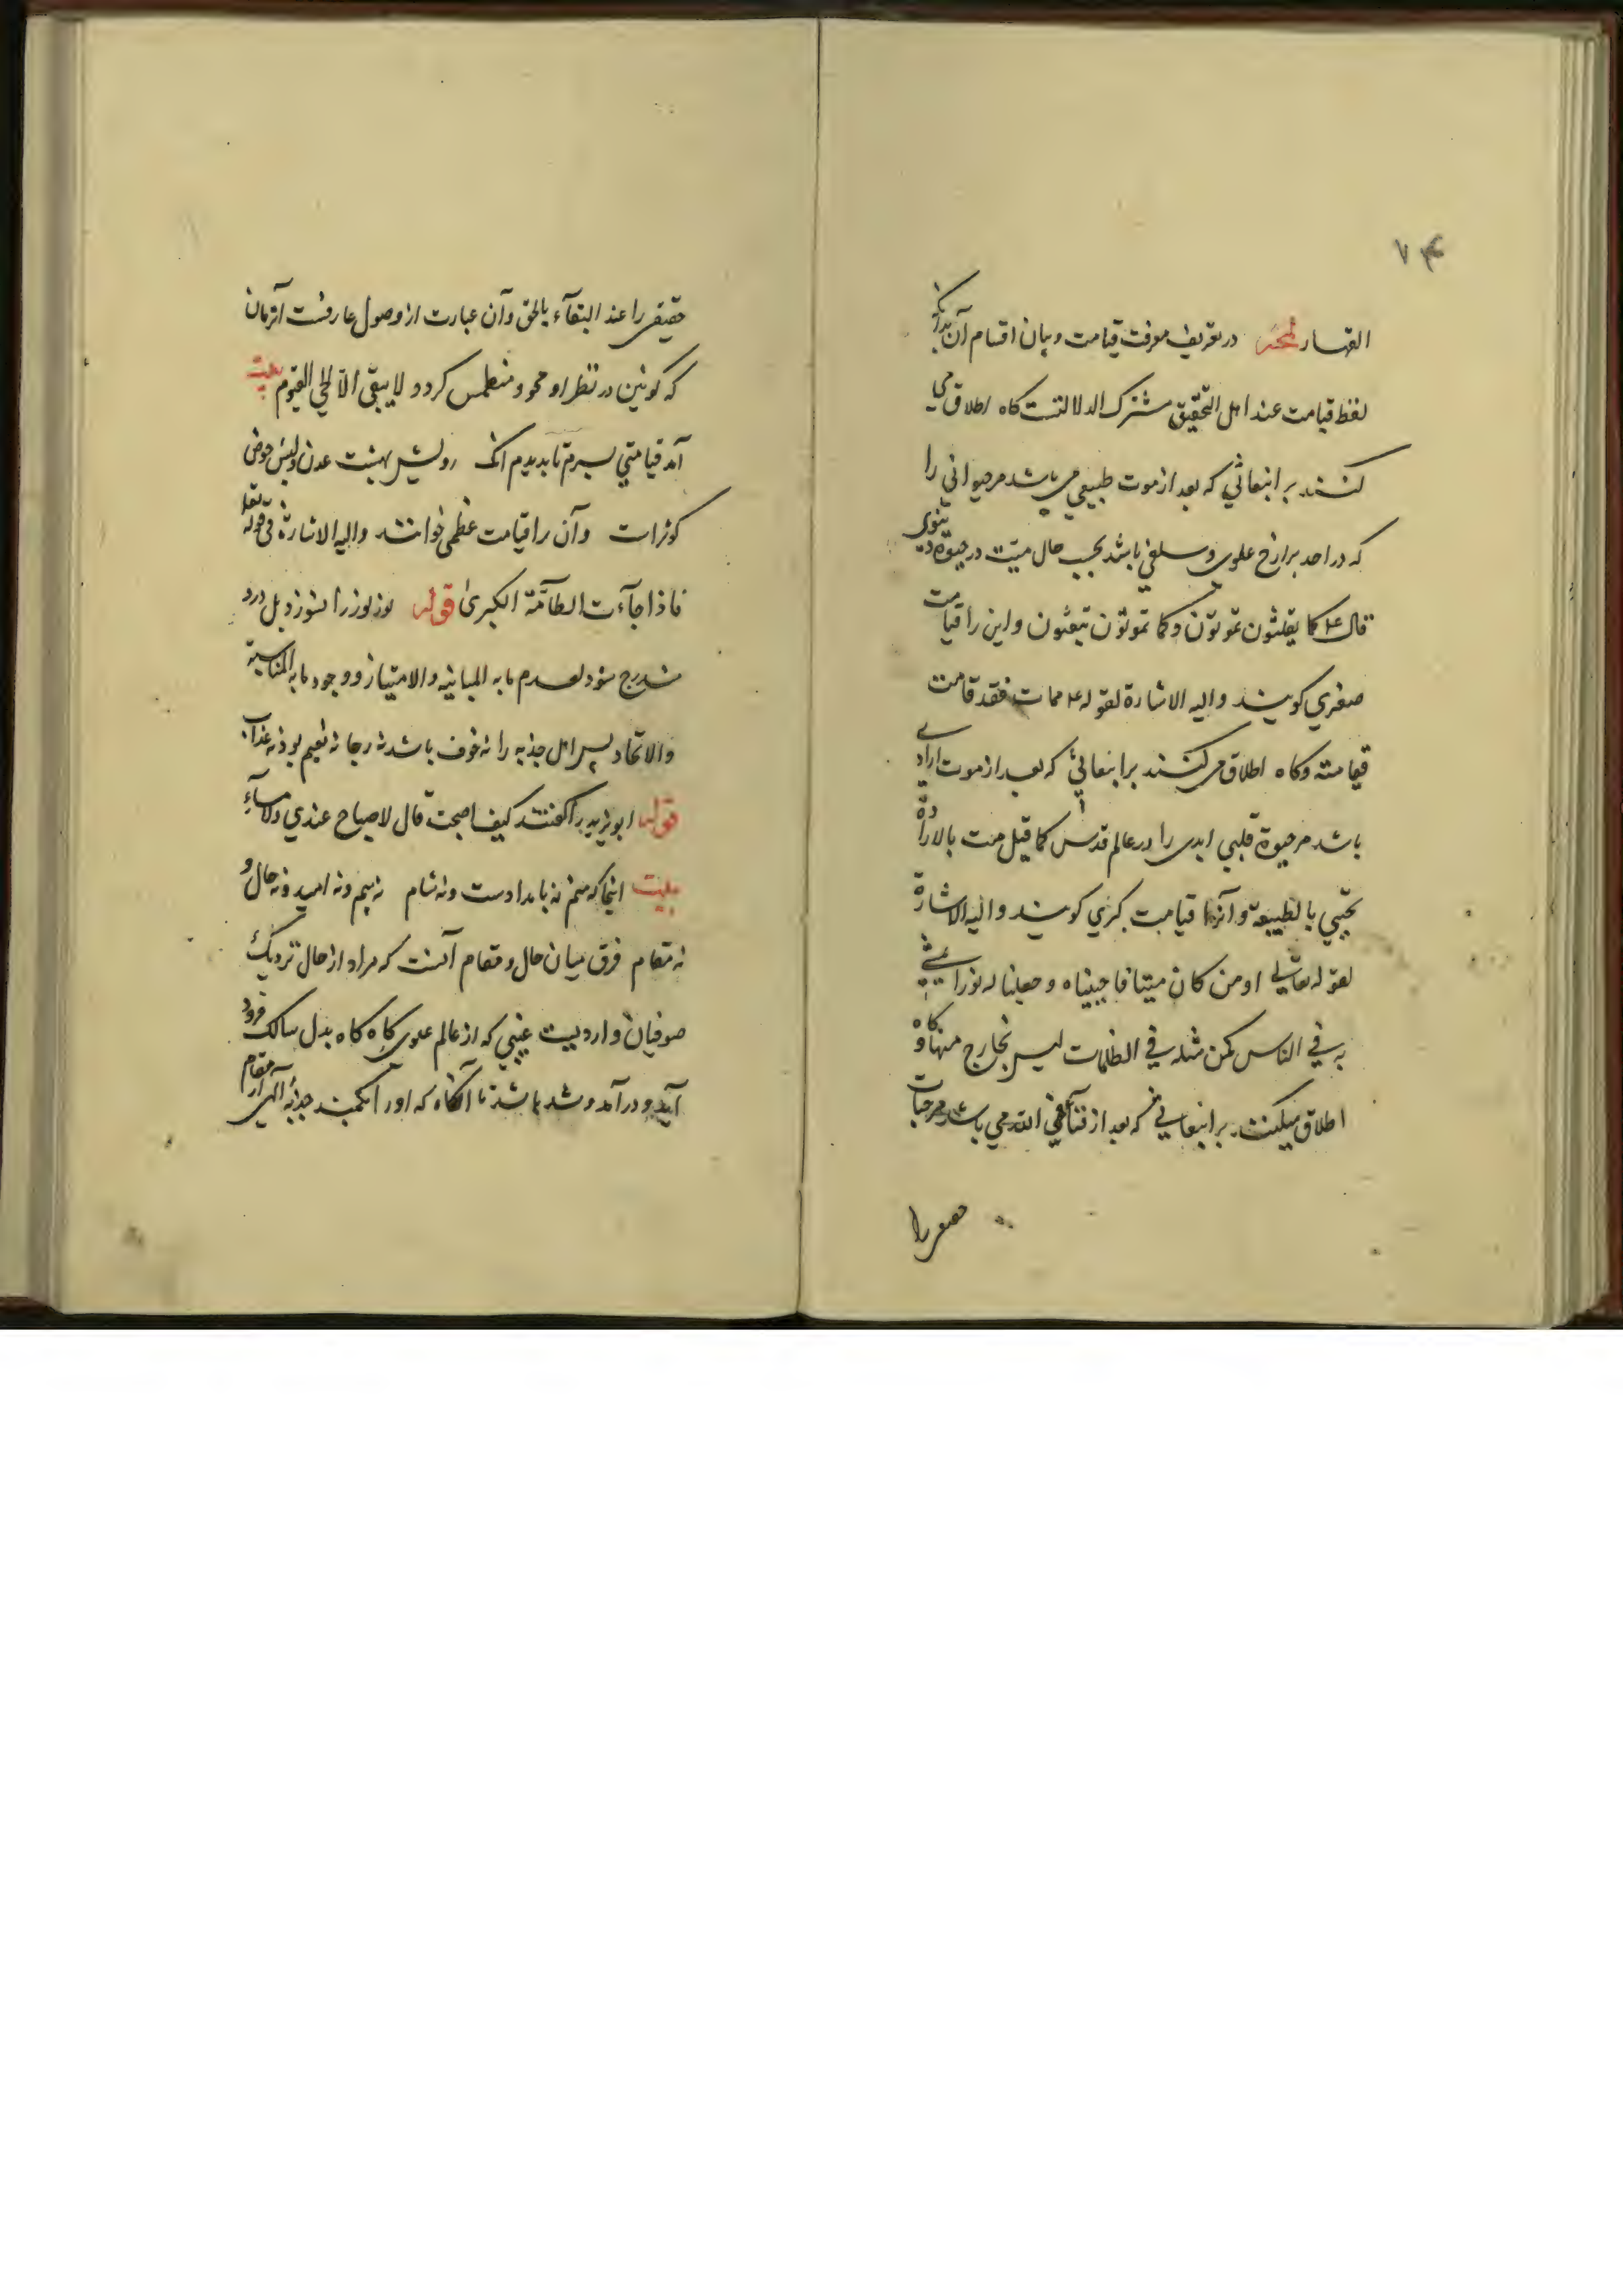 القهار لمحه در تعریف معرفت قیامت و بیان اقسام آن بدانکه
لفظ قیامت عند اهل التحقیق مشترک الدلالتست کاه اطلاق می
کنند بر انبعاثی که بعد از موت طبیعی می باشد مر حیوانی را
که در احد برازخ علوی و سلفی باشد بحسب حال میت در حیوة دنیوی
قال ع کما تعیشون تموتون و کما تموتون تبعثون و این را قیامت
صغری کویند و الیه الاشارة لقوله ع من مات فقد قامت
قیامته و کاه اطلاق می کنند بر انبعاثی که بعد از موت ارادی
باشد مر حیوة قلبی ابدی را در عالم قدس کما قیل مت بالارادة
تحیی بالطبیعة و آنرا قیامت کبری کویند و الیه الاشارة
لقوله تعالی او من کان میتا فاحییناه و جعلنا له نورا یمشی
به فی الناس کمن مثله فی الظلمات لیس بخارج منها و کاه
اطلاق میکنند بر انبعاثی که بعد از فنا فی الله می باشد مر حیات
حقیقی را عند البقآء بالحق و آن عبارت از وصول عارفست آنزمان
که کونین در نظر او محو و منطمس کردد لا یبقی الا الحی القیوم بیت
آمد قیامتی بسرم تا بدیدم آنک رویش بهشت عدن و لبش حوض
کوثرات و آن را قیامت عظمی خوانند و الیه الاشارة فی قوله تعالی
فاذا جآءت الطآمة الکبری قوله نوز نوز را نشوزد بل درو
مندرج شود لعدم ما به المباینه و الامتیاز و وجود ما به المناسبة
والاتحاد پس اهل جذبه را نه خوف باشد نه رجا نه نعیم بود نه عذاب
قوله ابو یزید را کفتند کیف اصبحت قال لا صباح عندی ولا مسآء
بیت اینجا که منم نه بامدادست و نه شام نه بیم و نه امید و نه حال و
نه مقام فرق میان حال و مقام آنست که مراد از حال نزدیک
صوفیان واردیست غیبی که از عالم علوی کاه کاه بدل سالک فرود
آید و در آمد و شد باشد تا آنکاه که او را بکمند جذبه آلهی از مقام